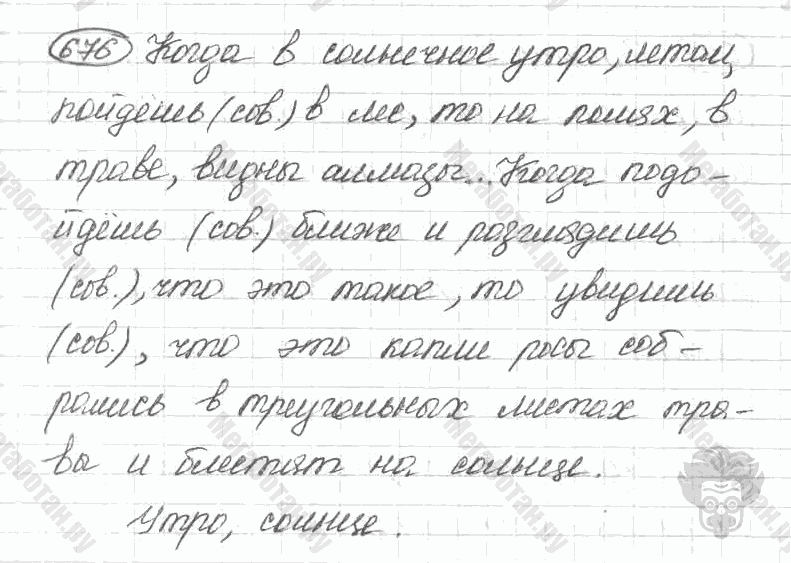 676 Когда в солнечное утро, летом,
пойдёшь (сов.) в лес, то на полях, в
траве, видны алмазы... Когда подо-
йдёшь (сов.) ближе и разглядишь
(сов.), что это такое, то увидишь
(сов.), что это капли росы соб-
рались в треугольных листах тра-
вы и блестят на солнце.
Утро, солнце.
Мегаботан.ру